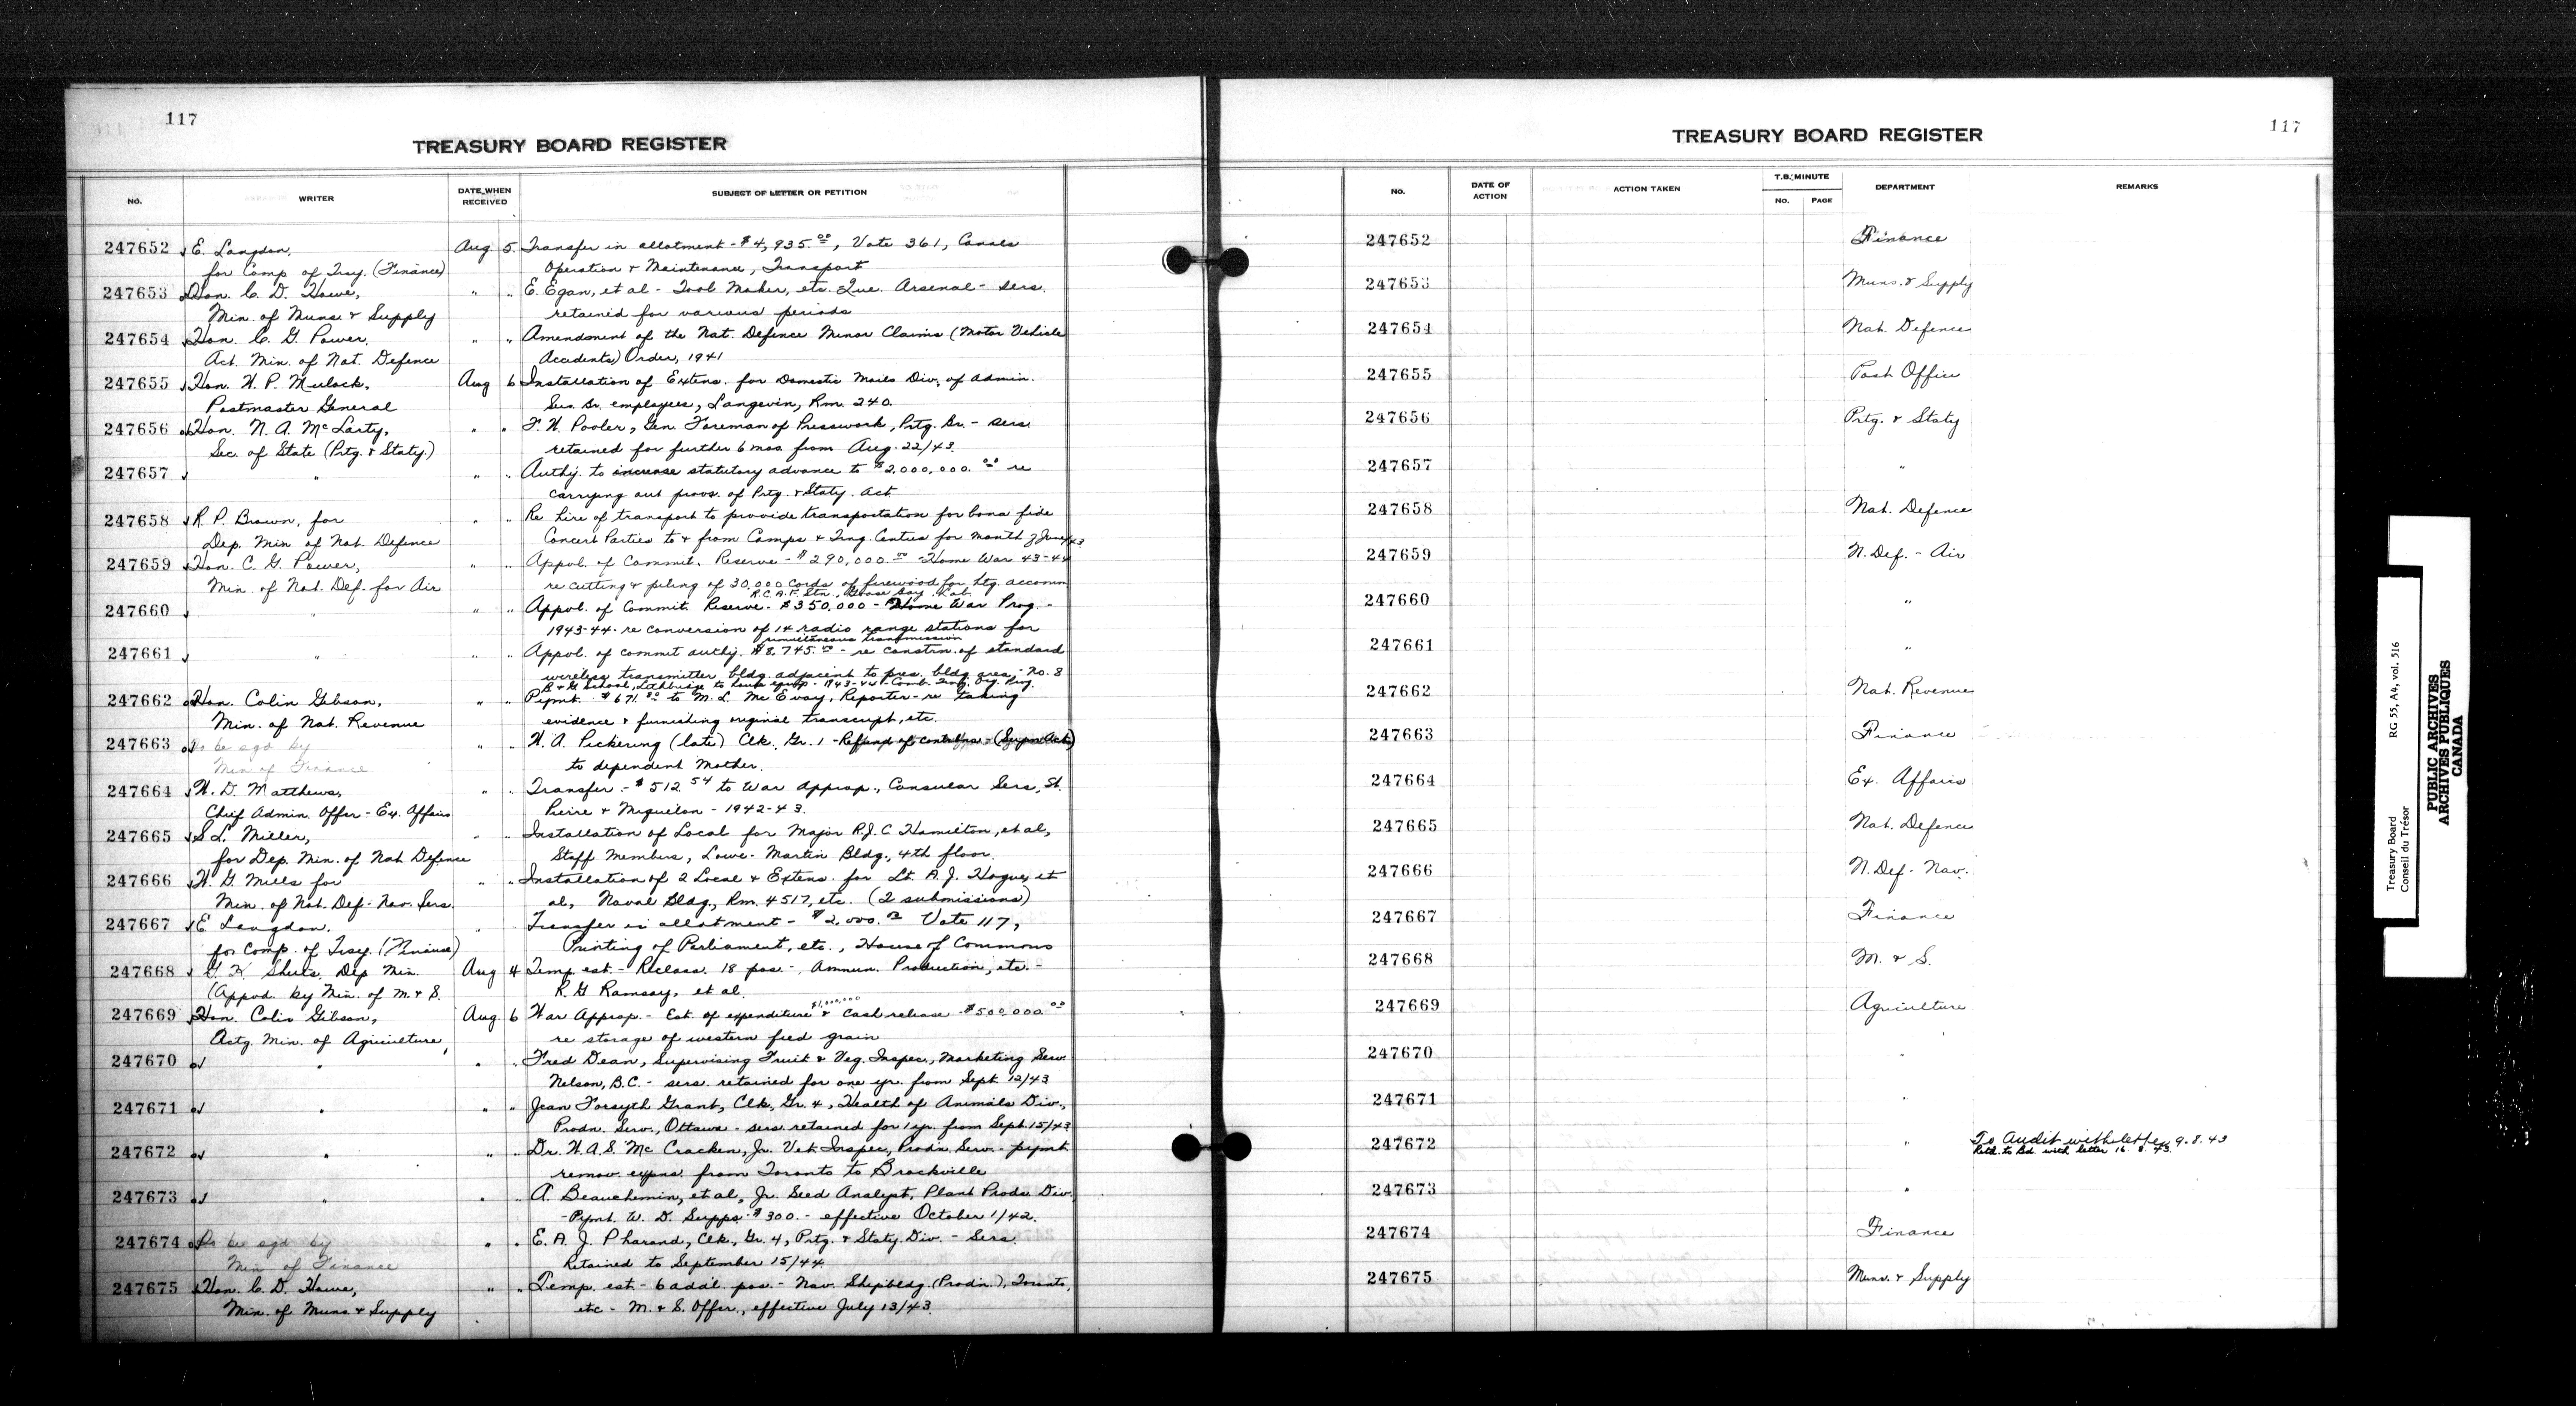 117
TREASURY BOARD REGISTER
NO. WRITER DATE WHEN RECEIVED SUBJECT OF LETTER OR PETITION
247652 E. Langdon, Aug. 5. Transfer in allotment - $4,935.00, Vote 361, Canals
for Comp. of Trsy. (Finance) Operation & Maintenance, Transport
247653 Hon. C. D. Howe, " " E. Egan, et al - Tool Maker, etc. Que. Arsenal - sers.
Min. of Muns. & Supply retained for various periods
247654 Hon. C. G. Power, " " Amendment of the Nat. Defence Minor Claims (Motor Vehicle
Act. Min. of Nat. Defence Accidents) Order, 1941
247655 Hon. W. P. Mulock, Aug 6 Installation of Extens. for Domestic Mails Div. of Admin.
Postmaster General Ser. Br. employees, Langevin, Rm. 240.
247656 Hon. N. A. McLarty, " " F. W. Pooler, Gen. Foreman of Presswork, Prtg. Br. - sers.
Sec. of State (Prtg. & Staty.) retained for further 6 mos. from Aug. 22/43.
247657 " " " Authy. to increase statutory advance to $2,000,000.00 re
carrying out provs. of Prtg. & Staty. Act.
247658 R. P. Brown, for " " Re hire of transport to provide transportation for bona fide
Dep. Min of Nat. Defence Concert Parties to & from Camps & Trng. Centres for month of June/43
247659 Hon. C. G. Power, " " Appvl. of Commit. Reserve - $290,000.00 - Home War 43-44
Min. of Nat. Def. for Air re cutting & piling of 30,000 cords of firewood for htg. accomm
R.C.A.F. Stn., Goose Bay, Lab.
247660 " " " Appvl. of Commit. Reserve - $350,000 - Home War Prog. -
1943-44 - re conversion of 14 radio range stations for
simultaneous transmission
247661 " " " Appvl. of commit authy. $8,745.00 - re constrn. of standard
wireless transmitter bldg. adjacent to pres. bldg. area - No. 8
B & G School, Lethbridge to house equip - 1943-44 - Comb. Trng. Org. Prog.
247662 Hon. Colin Gibson, " " Pymt. $671.80 to M. L. McEvay, Reporter - re taking
Min. of Nat. Revenue evidence & furnishing original transcript, etc.
247663 To be sgd by " " W. A. Pickering (late) Clk. Gr. 1 - Refund of contribns. (Supn Act)
Min of Finance to dependent Mother.
247664 W. D. Matthews, " " Transfer - $512.54 to War Approp., Consular Sers, St.
Chief Admin. Offer - Ex. Affairs Pierre & Miquelon - 1942-43.
247665 S. L. Miller, " " Installation of Local for Major R.J.C. Hamilton, et al,
for Dep. Min. of Nat Defence Staff Members, Lowe-Martin Bldg., 4th floor.
247666 W. G. Mills for " " Installation of 2 Local & Extens. for Lt. A. J. Hogue, et
Min. of Nat. Def - Nav. Sers. al, Naval Bldg., Rm. 4517, etc. (2 submissions)
247667 E. Langdon, " Transfer in allotment - $2,000.00 Vote 117,
for Comp. of Trsy. (Finance) Printing of Parliament, etc., House of Commons
247668 G. K. Sheils, Dep Min. Aug 4 Temp. est. - Reclass. 18 pos. -, Ammun. Production, etc. -
(Appvd. by Min. of M. & S. R. G. Ramsay, et al.
247669 Hon. Colin Gibson, Aug. 6 War Approp. - Est. of expenditure $1,000,000 & cash release $500,000.00
Actg. Min. of Agriculture, re storage of western feed grain
247670 " " " Fred Dean, Supervising Fruit & Veg. Inspec., Marketing Serv.
Nelson, B.C. - sers. retained for one yr. from Sept. 12/43
247671 " " " Jean Forsyth Grant, Clk., Gr. 4, Health of Animals Div.,
Prodn. Serv., Ottawa - sers. retained for 1 yr. from Sept. 15/43
247672 " " " Dr. W. A. S. McCracken, Jr. Vet. Inspec., Prodn. Serv. - pymt.
remov. expns. from Toronto to Brockville
247673 " " " A. Beauchemin, et al, Jr. Seed Analyst, Plant Prodn. Div.
- Pymt. W. D. Supps. $300. - effective October 1/42.
247674 To be sgd by " " E. A. J. Pharand, Clk., Gr. 4, Prtg. & Staty. Div. - Sers.
Min of Finance Retained to September 15/44
247675 Hon. C. D. Howe, " " Temp. est. - 6 addl. pos. - Nav. Shipbldg. (Prodn.), Toronto,
Min. of Muns & Supply etc - M. & S. Offer., effective July 13/43.
117
TREASURY BOARD REGISTER
NO. DATE OF ACTION ACTION TAKEN T.B. MINUTE NO. PAGE DEPARTMENT REMARKS
247652 Finance
247653 Muns. & Supply
247654 Nat. Defence
247655 Post Office
247656 Prtg. & Staty
247657 "
247658 Nat. Defence
247659 N. Def. - Air
247660 "
247661 "
247662 Nat. Revenue
247663 Finance
247664 Ex. Affairs
247665 Nat. Defence
247666 N. Def - Nav.
247667 Finance
247668 M. & S.
247669 Agriculture
247670 "
247671 "
247672 " To Audit with letter 9.8.43
Retd. to Bd. with letter 16.8.43.
247673 "
247674 Finance
247675 Muns. & Supply
Treasury Board RG 55, A4, vol. 516
Conseil du Trésor
PUBLIC ARCHIVES
ARCHIVES PUBLIQUES
CANADA